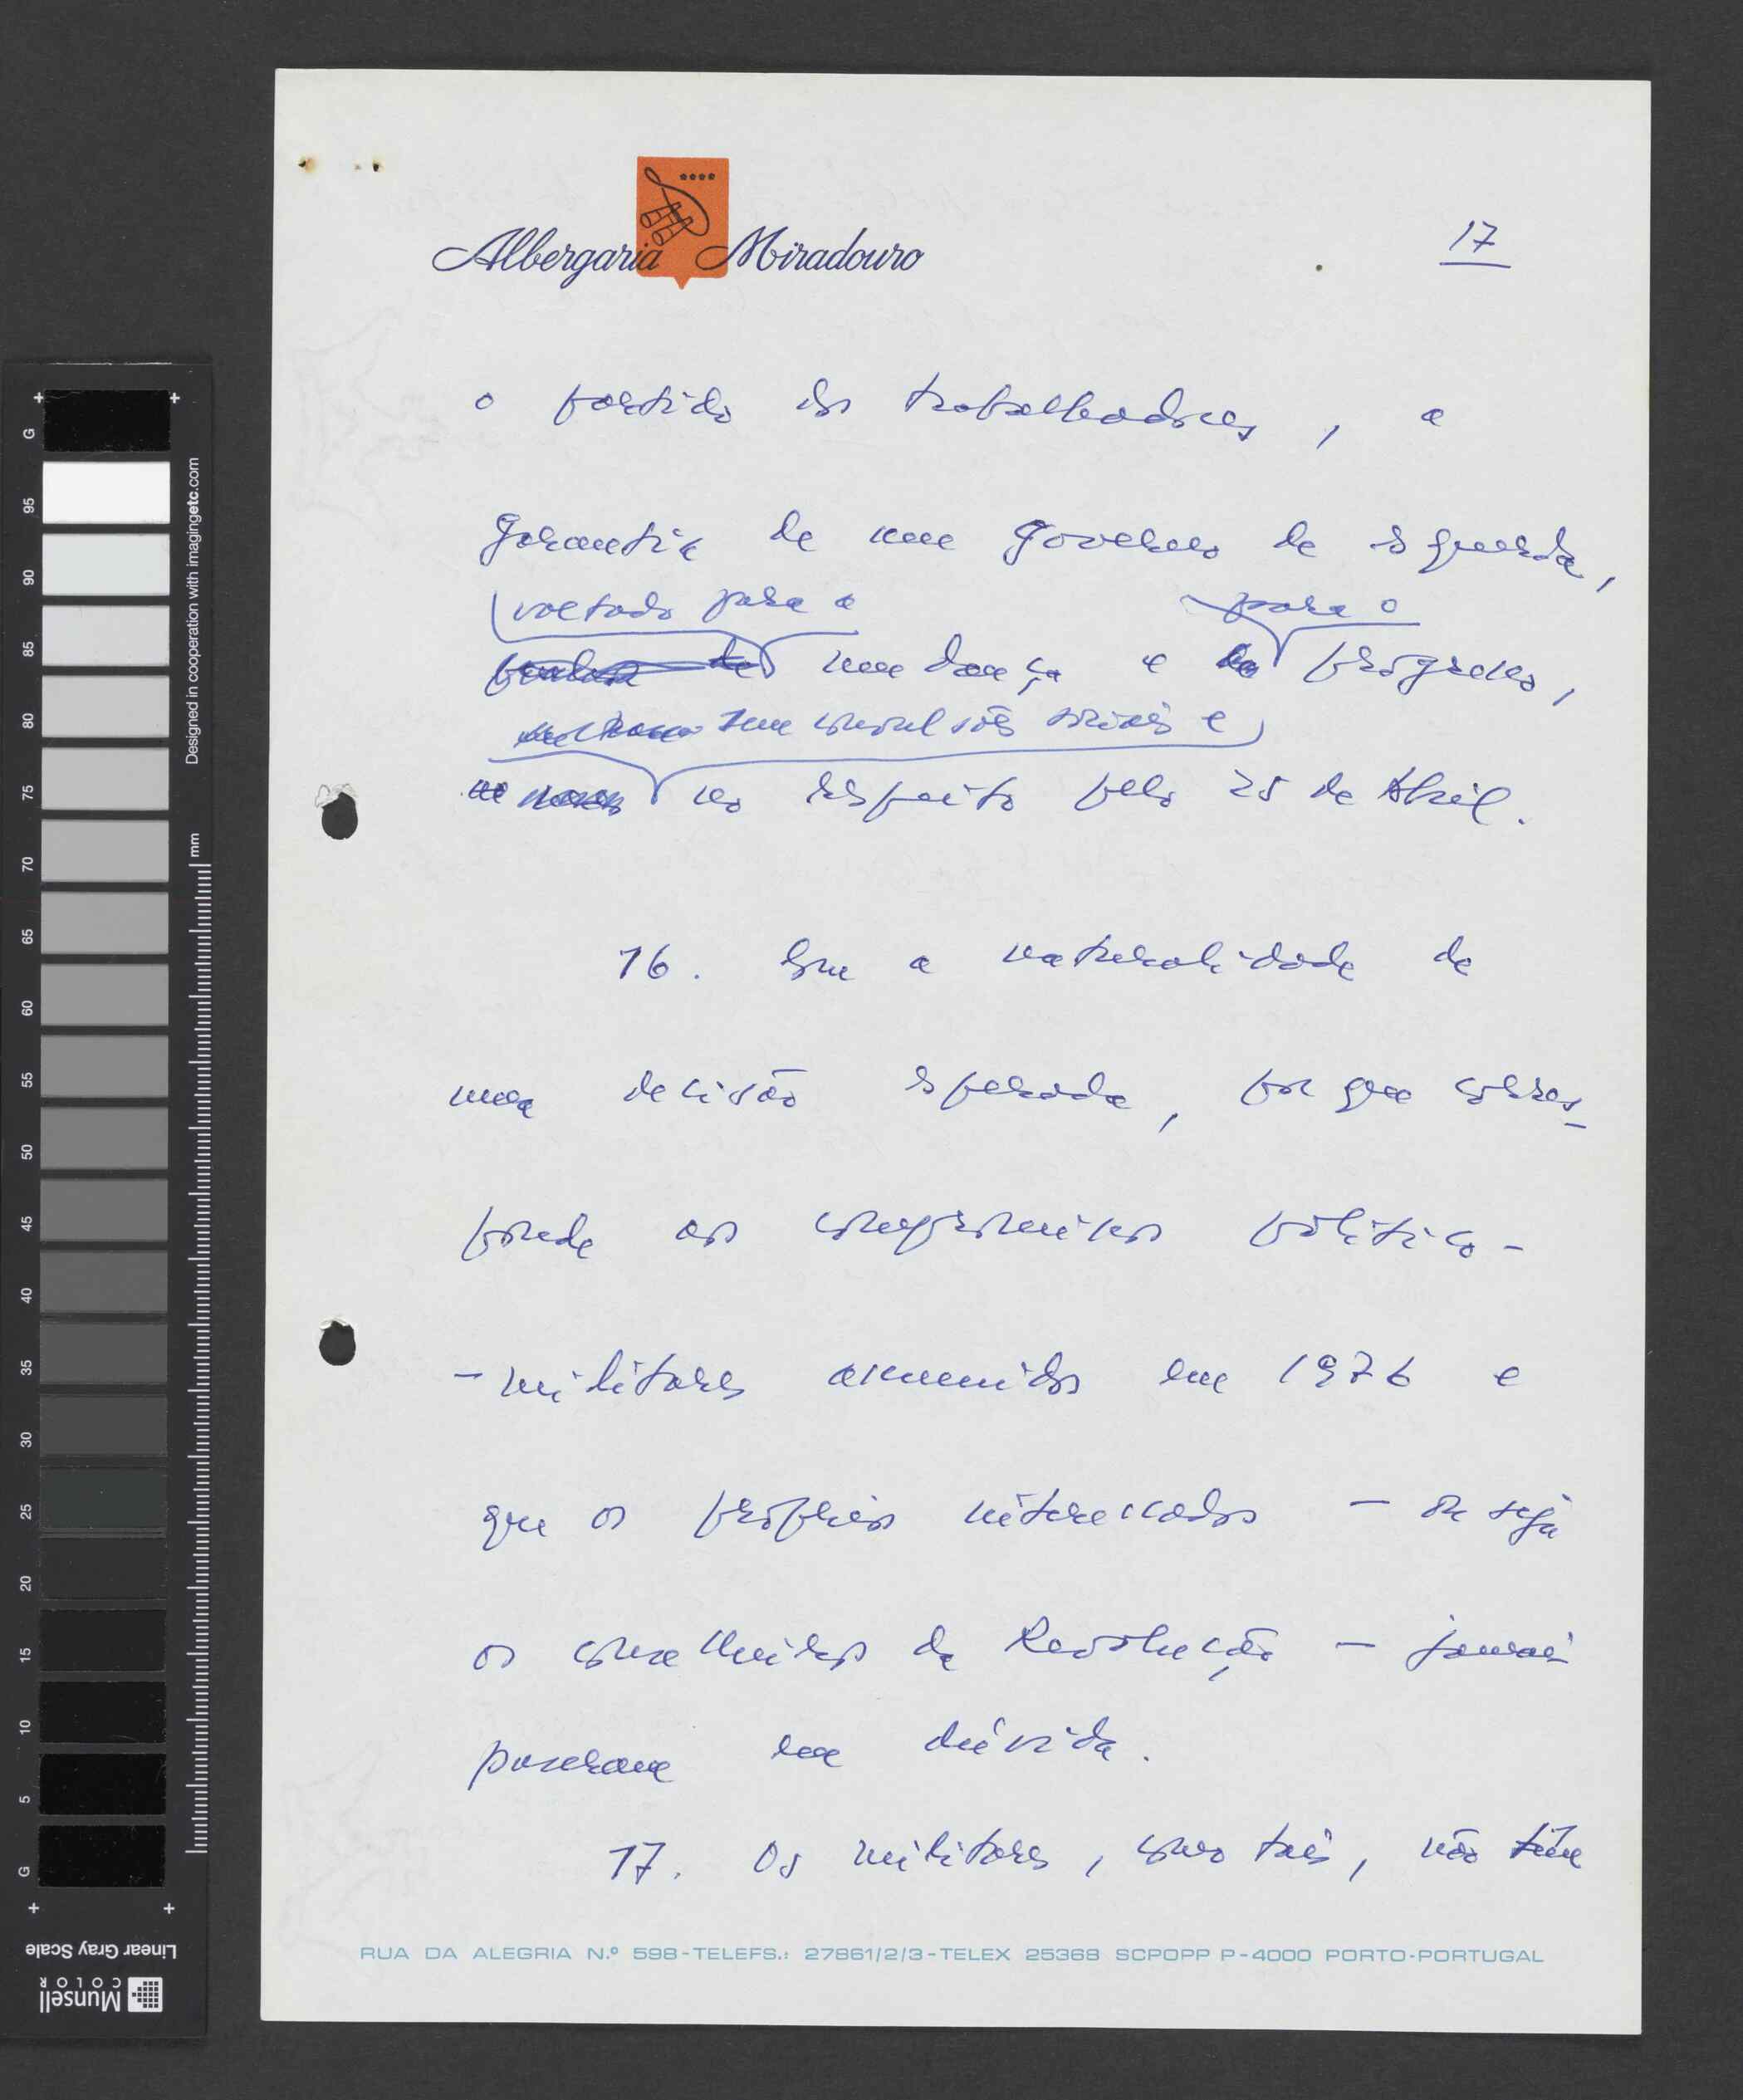 Albergaria Miradouro
17
o partido dos trabalhadores, a
garantia de um governo de esquerda,
voltado para a para o
mudança e progresso,
sem convulsões sociais e
no respeito pelo 25 de Abril.
16. Com a naturalidade de
uma decisão esperada, porque corres-
ponde aos compromissos político-
-militares assumidos em 1976 e
que os próprios interessados — ou seja
os conselheiros da Revolução — jamais
puseram em dúvida.
17. Os militares, como tais, não têm
RUA DA ALEGRIA N.º 598-TELEFS.: 27861/2/3-TELEX 25368 SCPOPP P-4000 PORTO-PORTUGAL
+ +
G 95 90 85 80 75 70 65 60 55 50 45 40 35 30 25 20 15 10 5 G
+ +
Designed in cooperation with imagingetc.com
mm
Linear Gray Scale
Munsell
COLOR